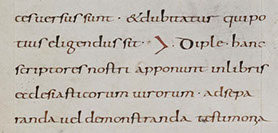 cesuersus sunt · & dubitatur qui po
tius eligendus sit · > · Diple · hanc
scriptores nostri apponunt in libris
ecclesiasticorum uirorum · ad sepa
randa uel demonstranda testimona